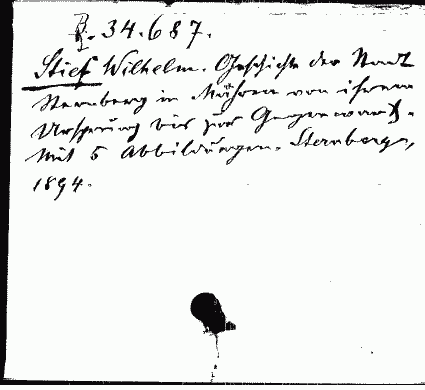 B. 34.687.
Stief Wilhelm. Geschichte der Stadt
Sternberg in Mähren von ihrem
Ursprung bis zur Gegenwart.
Mit 5 Abbildungen. Sternberg,
1894.